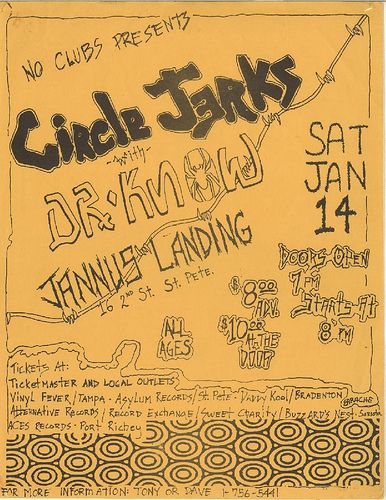 NO CLUBS PRESENTS
Circle Jerks
-with-
DR. KNOW
JANNUS LANDING
16 2nd St. St. Pete.
SAT
JAN
14
DOORS OPEN
7 PM
Starts At
8 PM
$8.00
ADV.
$10.00
AT THE
DOOR
ALL
AGES
Tickets At:
Ticketmaster AND LOCAL OUTLETS
VINYL FEVER/TAMPA · ASYLUM RECORDS/St. Pete · DADDY KOOL/BRADENTON APACHE
ALTERNATIVE RECORDS/RECORD EXCHANGE/SWEET CHARITY/BUZZARD'S NEST · Sarasota
ACES RECORDS · PORT RICHEY
FOR MORE INFORMATION: TONY OR DAVE 1-756-5441